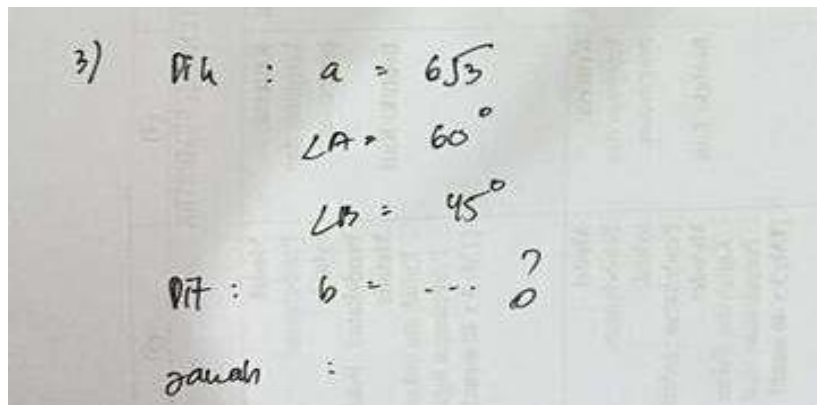 3) Dik : a = 6√3
∠A = 60°
∠B = 45°
Dit : b = ... ?
Jawab :